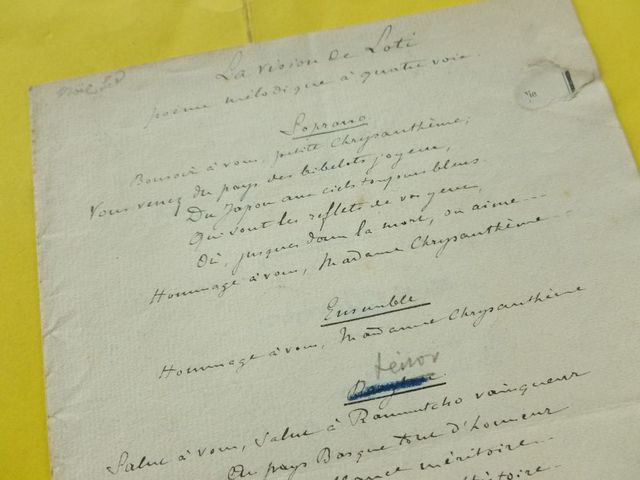 La Vision de Loti
poème mélodique à quatre voix
Soprano
Bonsoir à vous, petite Chrysanthème;
Vous venez du pays des bibelots joyeux,
Du Japon aux ciels toujours bleus
Qui sont les reflets de vos yeux,
Où, jusques dans la mort, on aime...
Hommage à vous, Madame Chrysanthème...
Ensemble
Hommage à vous, Madame Chrysanthème
ténor
Salue à vous, Salue à Ramuntcho vainqueur
Du pays Basque tout d'honneur
méritoire...